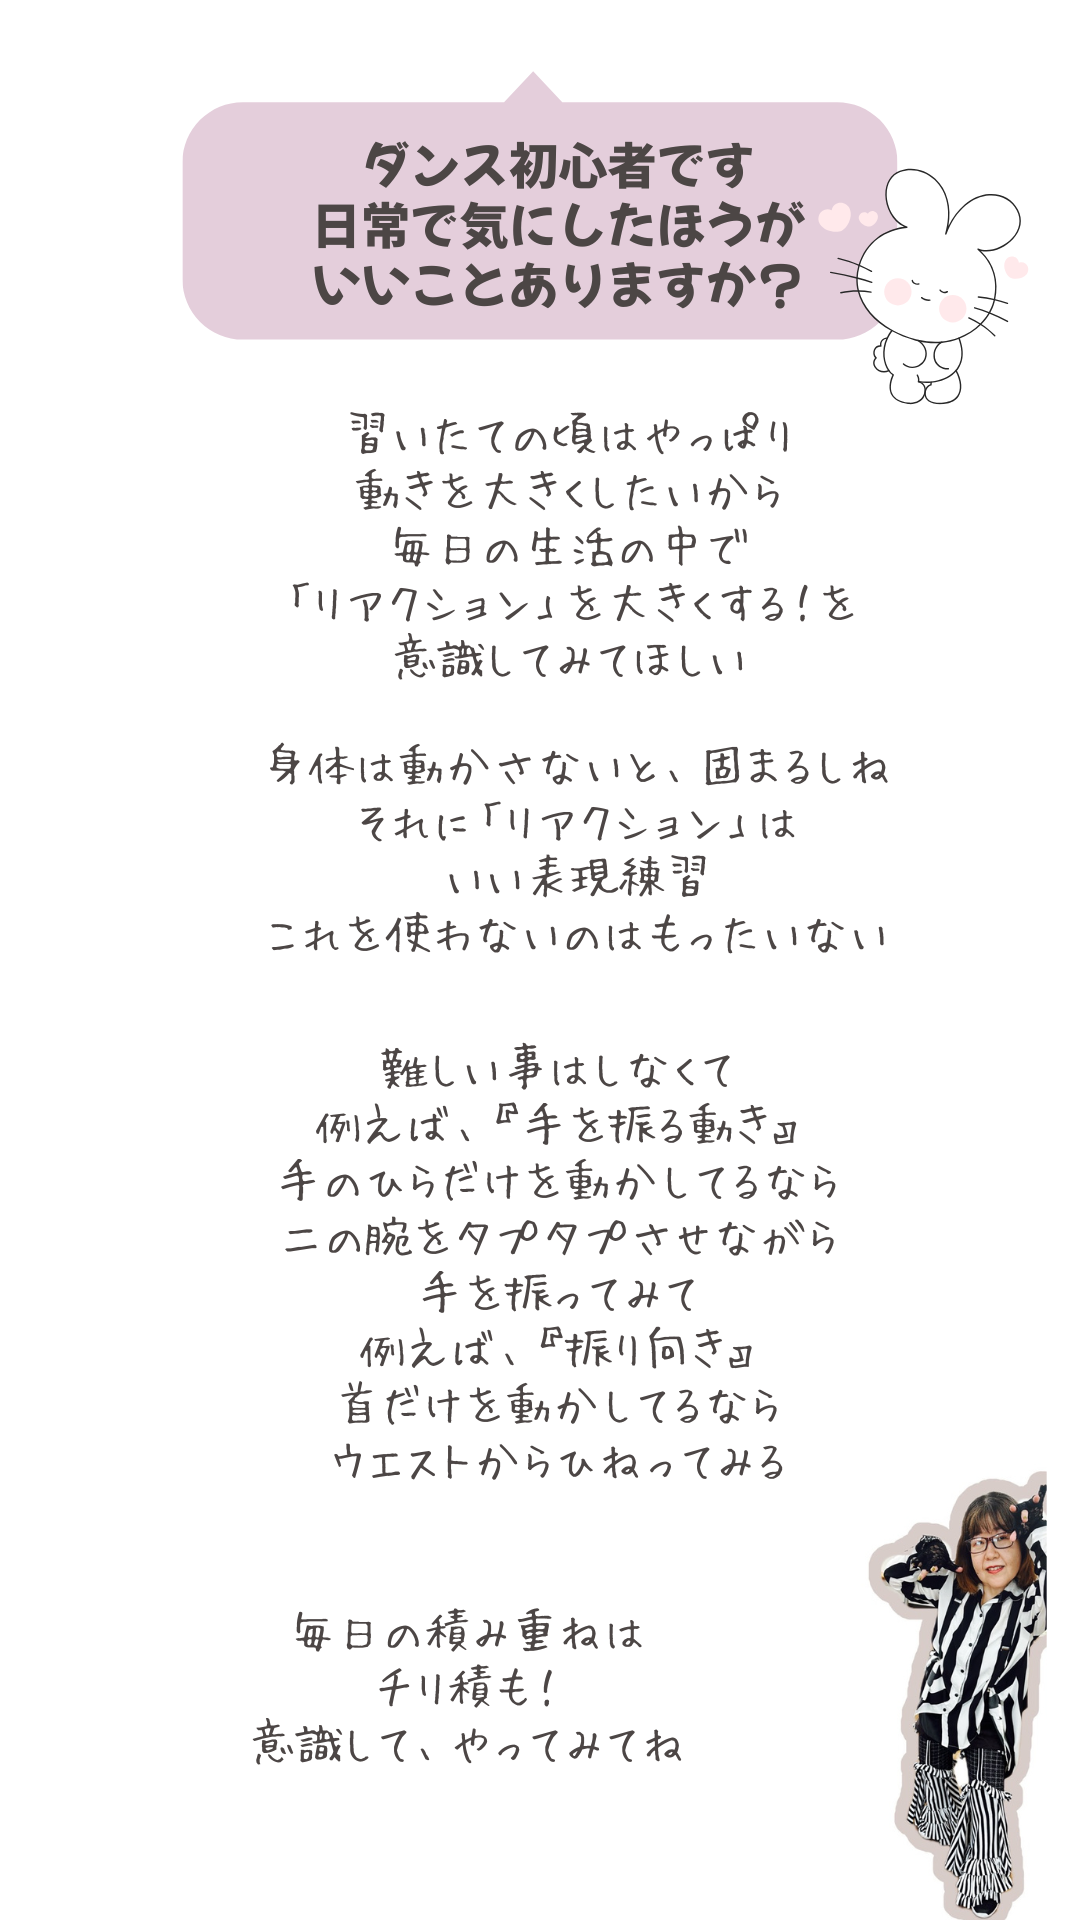 ダンス初心者です
日常で気にしたほうが
いいことありますか?
習いたての頃はやっぱり
動きを大きくしたいから
毎日の生活の中で
「リアクション」を大きくする!を
意識してみてほしい
身体は動かさないと、固まるしね
それに「リアクション」は
いい表現練習
これを使わないのはもったいない
難しい事はしなくて
例えば、『手を振る動き』
手のひらだけを動かしてるなら
二の腕をタプタプさせながら
手を振ってみて
例えば、『振り向き』
首だけを動かしてるなら
ウエストからひねってみる
毎日の積み重ねは
チリ積も!
意識して、やってみてね